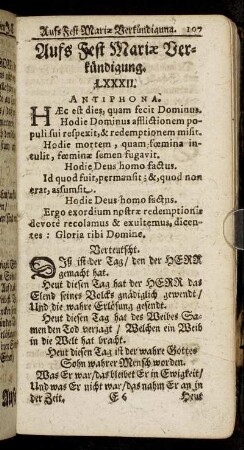 Aufs Fest Mariæ Verkündigung. 107
Aufs Fest Mariæ Ver-
kündigung.
LXXXII.
ANTIPHONA.
HÆc est dies, quam fecit Dominus.
Hodie Dominus afflictionem po-
puli sui respexit, & redemptionem misit.
Hodie mortem, quam fœmina in-
tulit, fœminæ semen fugavit.
Hodie Deus homo factus.
Id quod fuit, permansit; &, quod non
erat, assumsit.
Hodie Deus homo factus.
Ergo exordium nostræ redemptionis
devotè recolamus & exultemus, dicen-
tes: Gloria tibi Domine.
Verteutscht.
DIß ist der Tag/ den der HERR
gemacht hat.
Heut diesen Tag hat der HERR das
Elend seines Volcks gnädiglich gewendt/
Und die wahre Erlösung gesendt.
Heut diesen Tag hat des Weibes Sa-
men den Tod verjagt/ Welchen ein Weib
in die Welt hat bracht.
Heut diesen Tag ist der wahre Gottes
Sohn wahrer Mensch worden.
Was Er war/ das bleibet Er in Ewigkeit/
Und was Er nicht war/ das nahm Er an in
der Zeit. E 6 Heut